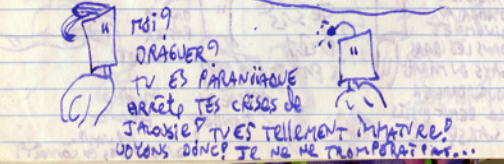 MOI?
DRAGUER?
TU ES PARANÏAQUE
ARRÊTE TES CRISES DE
JALOUSIE? TU ES TELLEMENT IMMATURE!
VOYONS DONC! JE NE ME TROMPERAI PAS...